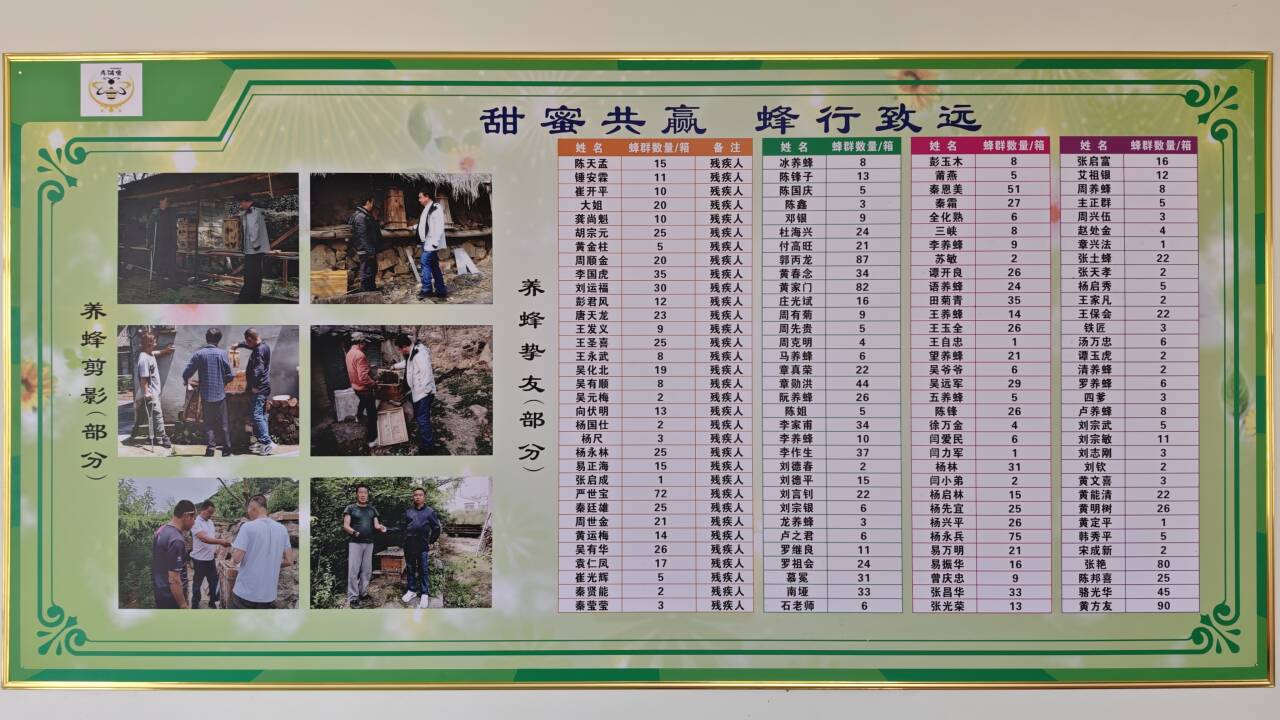 甜蜜共赢 蜂行致远
养蜂剪影(部分)
养蜂挚友(部分)
姓名 蜂群数量/箱 备注
陈天孟 15 残疾人
锤安霖 11 残疾人
崔开平 10 残疾人
大姐 20 残疾人
龚尚魁 10 残疾人
胡宗元 25 残疾人
黄金柱 5 残疾人
周顺金 20 残疾人
李国虎 35 残疾人
刘运福 30 残疾人
彭君风 12 残疾人
唐天龙 23 残疾人
王发义 9 残疾人
王圣喜 25 残疾人
王永武 8 残疾人
吴化北 19 残疾人
吴有顺 8 残疾人
吴元梅 2 残疾人
向伏明 13 残疾人
杨国仕 2 残疾人
杨尺 3 残疾人
杨永林 25 残疾人
易正海 15 残疾人
张启成 1 残疾人
严世宝 72 残疾人
秦廷雄 25 残疾人
周世金 21 残疾人
黄运梅 14 残疾人
吴有华 26 残疾人
袁仁凤 17 残疾人
崔光辉 5 残疾人
秦贤能 2 残疾人
秦莹莹 3 残疾人
姓名 蜂群数量/箱
冰养蜂 8
陈锋子 13
陈国庆 5
陈鑫 3
邓银 9
杜海兴 24
付高旺 21
郭丙龙 87
黄春念 34
黄家门 82
庄光斌 16
周有菊 9
周先贵 5
周克明 4
马养蜂 6
章真荣 22
章勋洪 44
阮养蜂 26
陈姐 5
李家甫 34
李养蜂 10
李作生 37
刘德春 2
刘德平 15
刘言钊 22
刘宗银 6
龙养蜂 3
卢之君 6
罗继良 11
罗祖会 24
慕冕 31
南垭 33
石老师 6
姓名 蜂群数量/箱
彭玉木 8
莆燕 5
秦恩美 51
秦霜 27
全化熟 6
三峡 8
李养蜂 9
苏敏 2
谭开良 26
语养蜂 24
田菊青 35
王养蜂 14
王玉全 26
王自忠 1
望养蜂 21
吴爷爷 6
吴远军 29
五养蜂 5
陈锋 26
徐万金 4
闫爱民 6
闫力军 1
杨林 31
闫小弟 2
杨启林 15
杨先宜 25
杨兴平 26
杨永兵 75
易万明 21
易振华 16
曾庆忠 9
张昌华 33
张光荣 13
姓名 蜂群数量/箱
张启富 16
艾祖银 12
周养蜂 8
主正群 5
周兴伍 3
赵处金 4
章兴法 1
张土蜂 22
张天孝 2
杨启秀 5
王家凡 2
王保会 22
铁匠 3
汤万忠 6
谭玉虎 2
清养蜂 2
罗养蜂 6
四爹 3
卢养蜂 8
刘宗武 5
刘宗敏 11
刘志刚 3
刘钦 2
黄文喜 3
黄能清 22
黄明树 26
黄定平 1
韩秀平 5
宋成新 2
张艳 80
陈邦喜 25
骆光华 45
黄方友 90